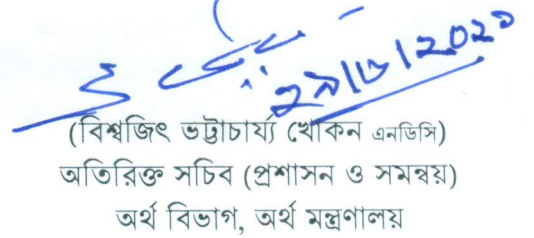 ২৯|৬|২০২১
(বিশ্বজিৎ ভট্টাচার্য্য খোকন এনডিসি)
অতিরিক্ত সচিব (প্রশাসন ও সমন্বয়)
অর্থ বিভাগ, অর্থ মন্ত্রণালয়